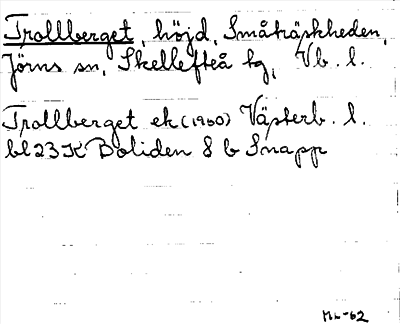 Trollberget, höjd, Småträskheden,
Jörns sn, Skellefteå tg, Vb. l.
Trollberget ek (1960) Västerb. l.
bl 23 K Boliden 8 b Snapp
ML-62